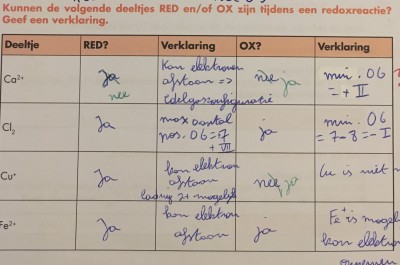 Kunnen de volgende deeltjes RED en/of OX zijn tijdens een redoxreactie?
Geef een verklaring.
Deeltje RED? Verklaring OX? Verklaring
Ca²⁺ Ja nee kan elektronen afstaan => edelgasconfiguratie nee ja min. OG = + II
Cl₂ Ja max aantal pos. OG = 7 + VII ja min. OG = 7-8 = -I
Cu⁺ Ja kan elektron afstaan 2+ mogelijk nee, ja Cu is niet
Fe²⁺ Ja kan elektron afstaan ja Fe⁺ is kan elektron